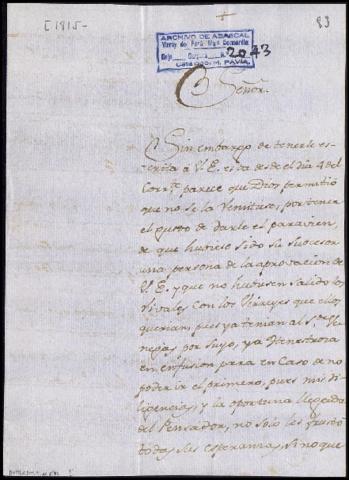 [1815-
83
ARCHIVO DE ABASCAL
Virrey del Perú
2043
M. PAVIA
Señor.
Sin embargo de tenerle es-
crita á V.E. esta desde el dia 4 del
Corrte. parece que Dios permitió
que no se la remitiese, por tener
el gusto de darle el paravien,
de que hubiese sido su subcesor
una persona de la aprovacion de
V.E. y que no hubiesen salido los
Con los Virreyes que ellos
querian, pues ya tenian al Sr. Ve-
negas por suyo, ya
en para en Caso de no
poder ir el primero, pues mis di-
ligencias, y la oportuna llegada
del Pensador, no solo les frustó
todas sus esperanzas, sino que